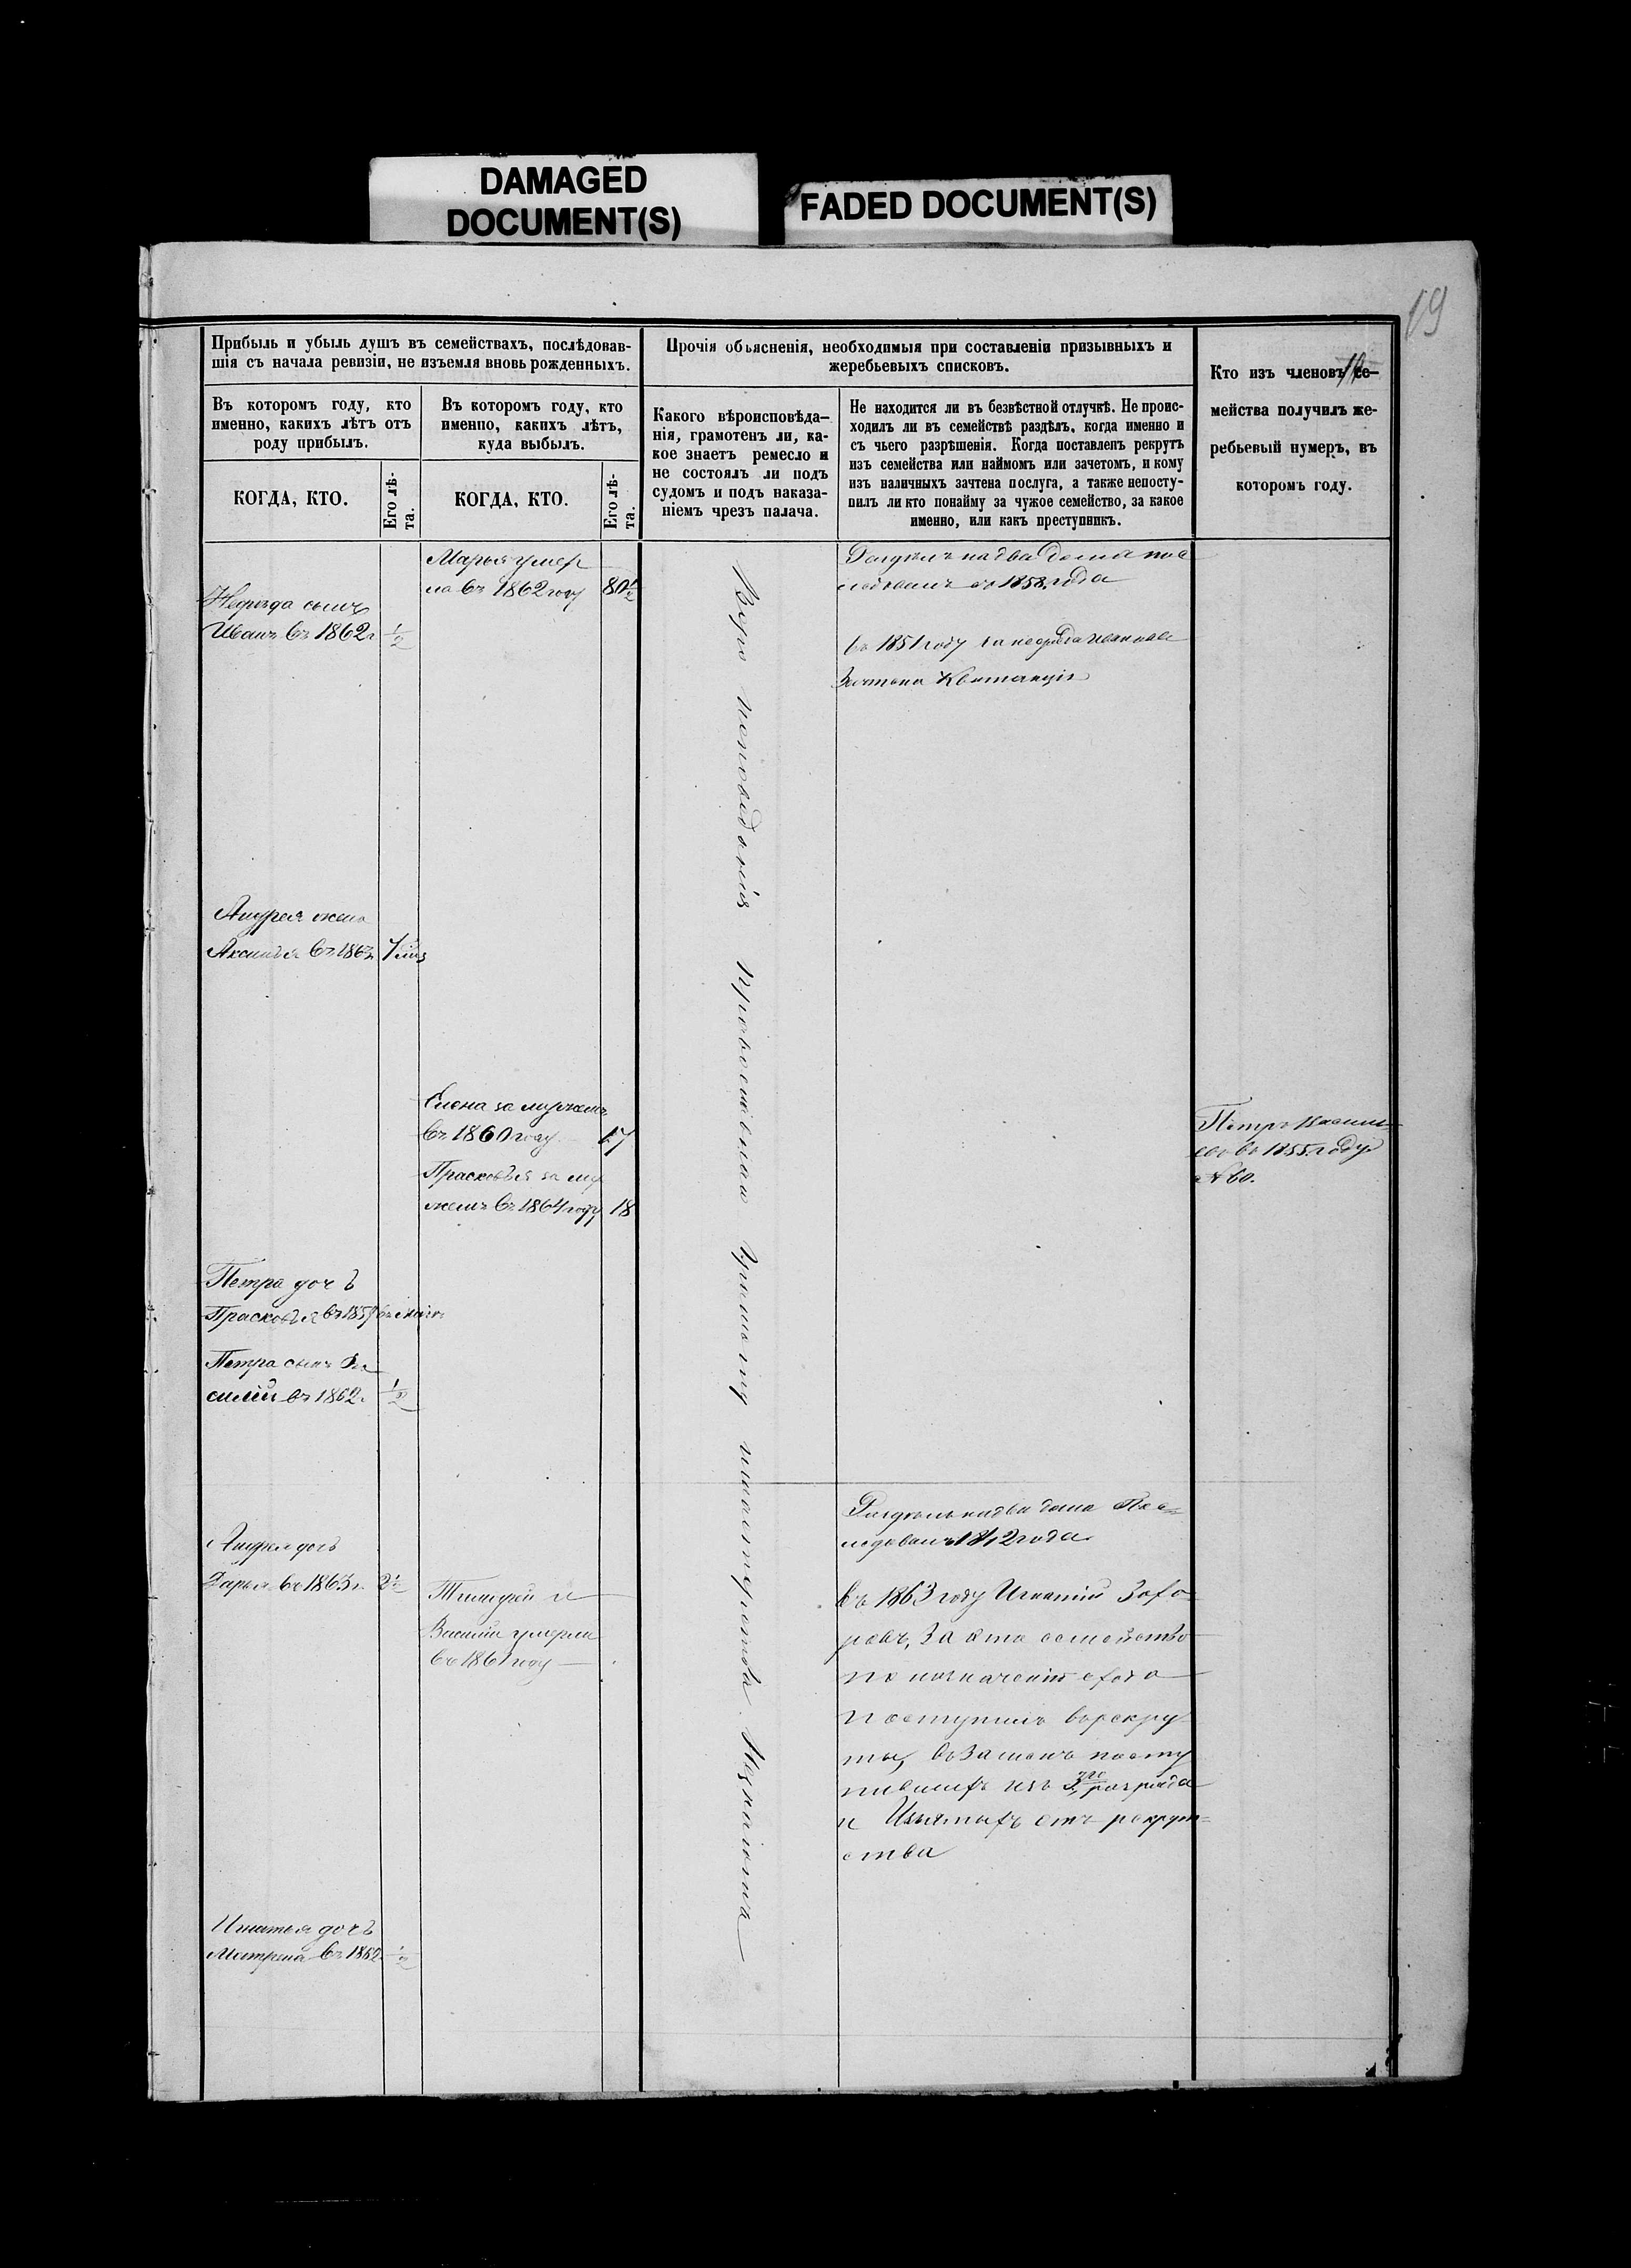 DAMAGED
DOCUMENT(S)
FADED DOCUMENT(S)
19
Прибыль и убыль душъ въ семействахъ, послѣдовав-
шія съ начала ревизіи, не изъемля вновь рожденныхъ.
Въ которомъ году, кто
именно, какихъ лѣтъ отъ
роду прибылъ.
КОГДА, КТО.
Его лѣ-
та.
Въ которомъ году, кто
именно, какихъ лѣтъ,
куда выбылъ.
КОГДА, КТО.
Его лѣ-
та.
Прочія объясненія, необходимыя при составленіи призывныхъ и
жеребьевыхъ списковъ.
Какого вѣроисповѣда-
нія, грамотенъ ли, ка-
кое знаетъ ремесло и
не состоялъ ли подъ
судомъ и подъ наказа-
ніемъ чрезъ палача.
Не находится ли въ безвѣстной отлучкѣ. Не проис-
ходилъ ли въ семействѣ раздѣлъ, когда именно и
съ чьего разрѣшенія. Когда поставленъ рекрутъ
изъ семейства или наймомъ или зачетомъ, и кому
изъ наличныхъ зачтена послуга, а также непосту-
пилъ ли кто понайму за чужое семейство, за какое
именно, или какъ преступникъ.
Кто изъ членовъ се-
мейства получилъ же-
ребьевый нумеръ, въ
которомъ году.
сынъ
Иванъ въ 1862 г 1/2
Андрея жена
Аксинья въ 1863
Петра дочь
Прасковья въ
Петра сынъ Ва
силій въ 1862 г. 1/2
Андрея дочь
Дарья въ 1863 г.
Игнатья дочь
Матрена въ 1862 1/2
Марья умер
ла въ 1862 году 80 1/2
Елена за мужемъ
въ 1860 году 17
Прасковья за му
жемъ въ 1864 году 18
Василій умерли
въ 1861 году
Веро исповеданія Православнаго Грамоту
Раздѣлъ на два дома пос
ледовалъ въ 1858 года
въ 1851 году за
Зачтена Квитанція
Раздѣлъ на два дома Пос-
ледовалъ года
въ 1863 году Игнатій
за это семейство
по назначенію схода
поступилъ въ рекру
ты, въ замѣнъ посту
пившихъ изъ 3го разряда
и Изъятыхъ отъ рекрут-
ства
Петръ
въ 1855 году
№ 60.